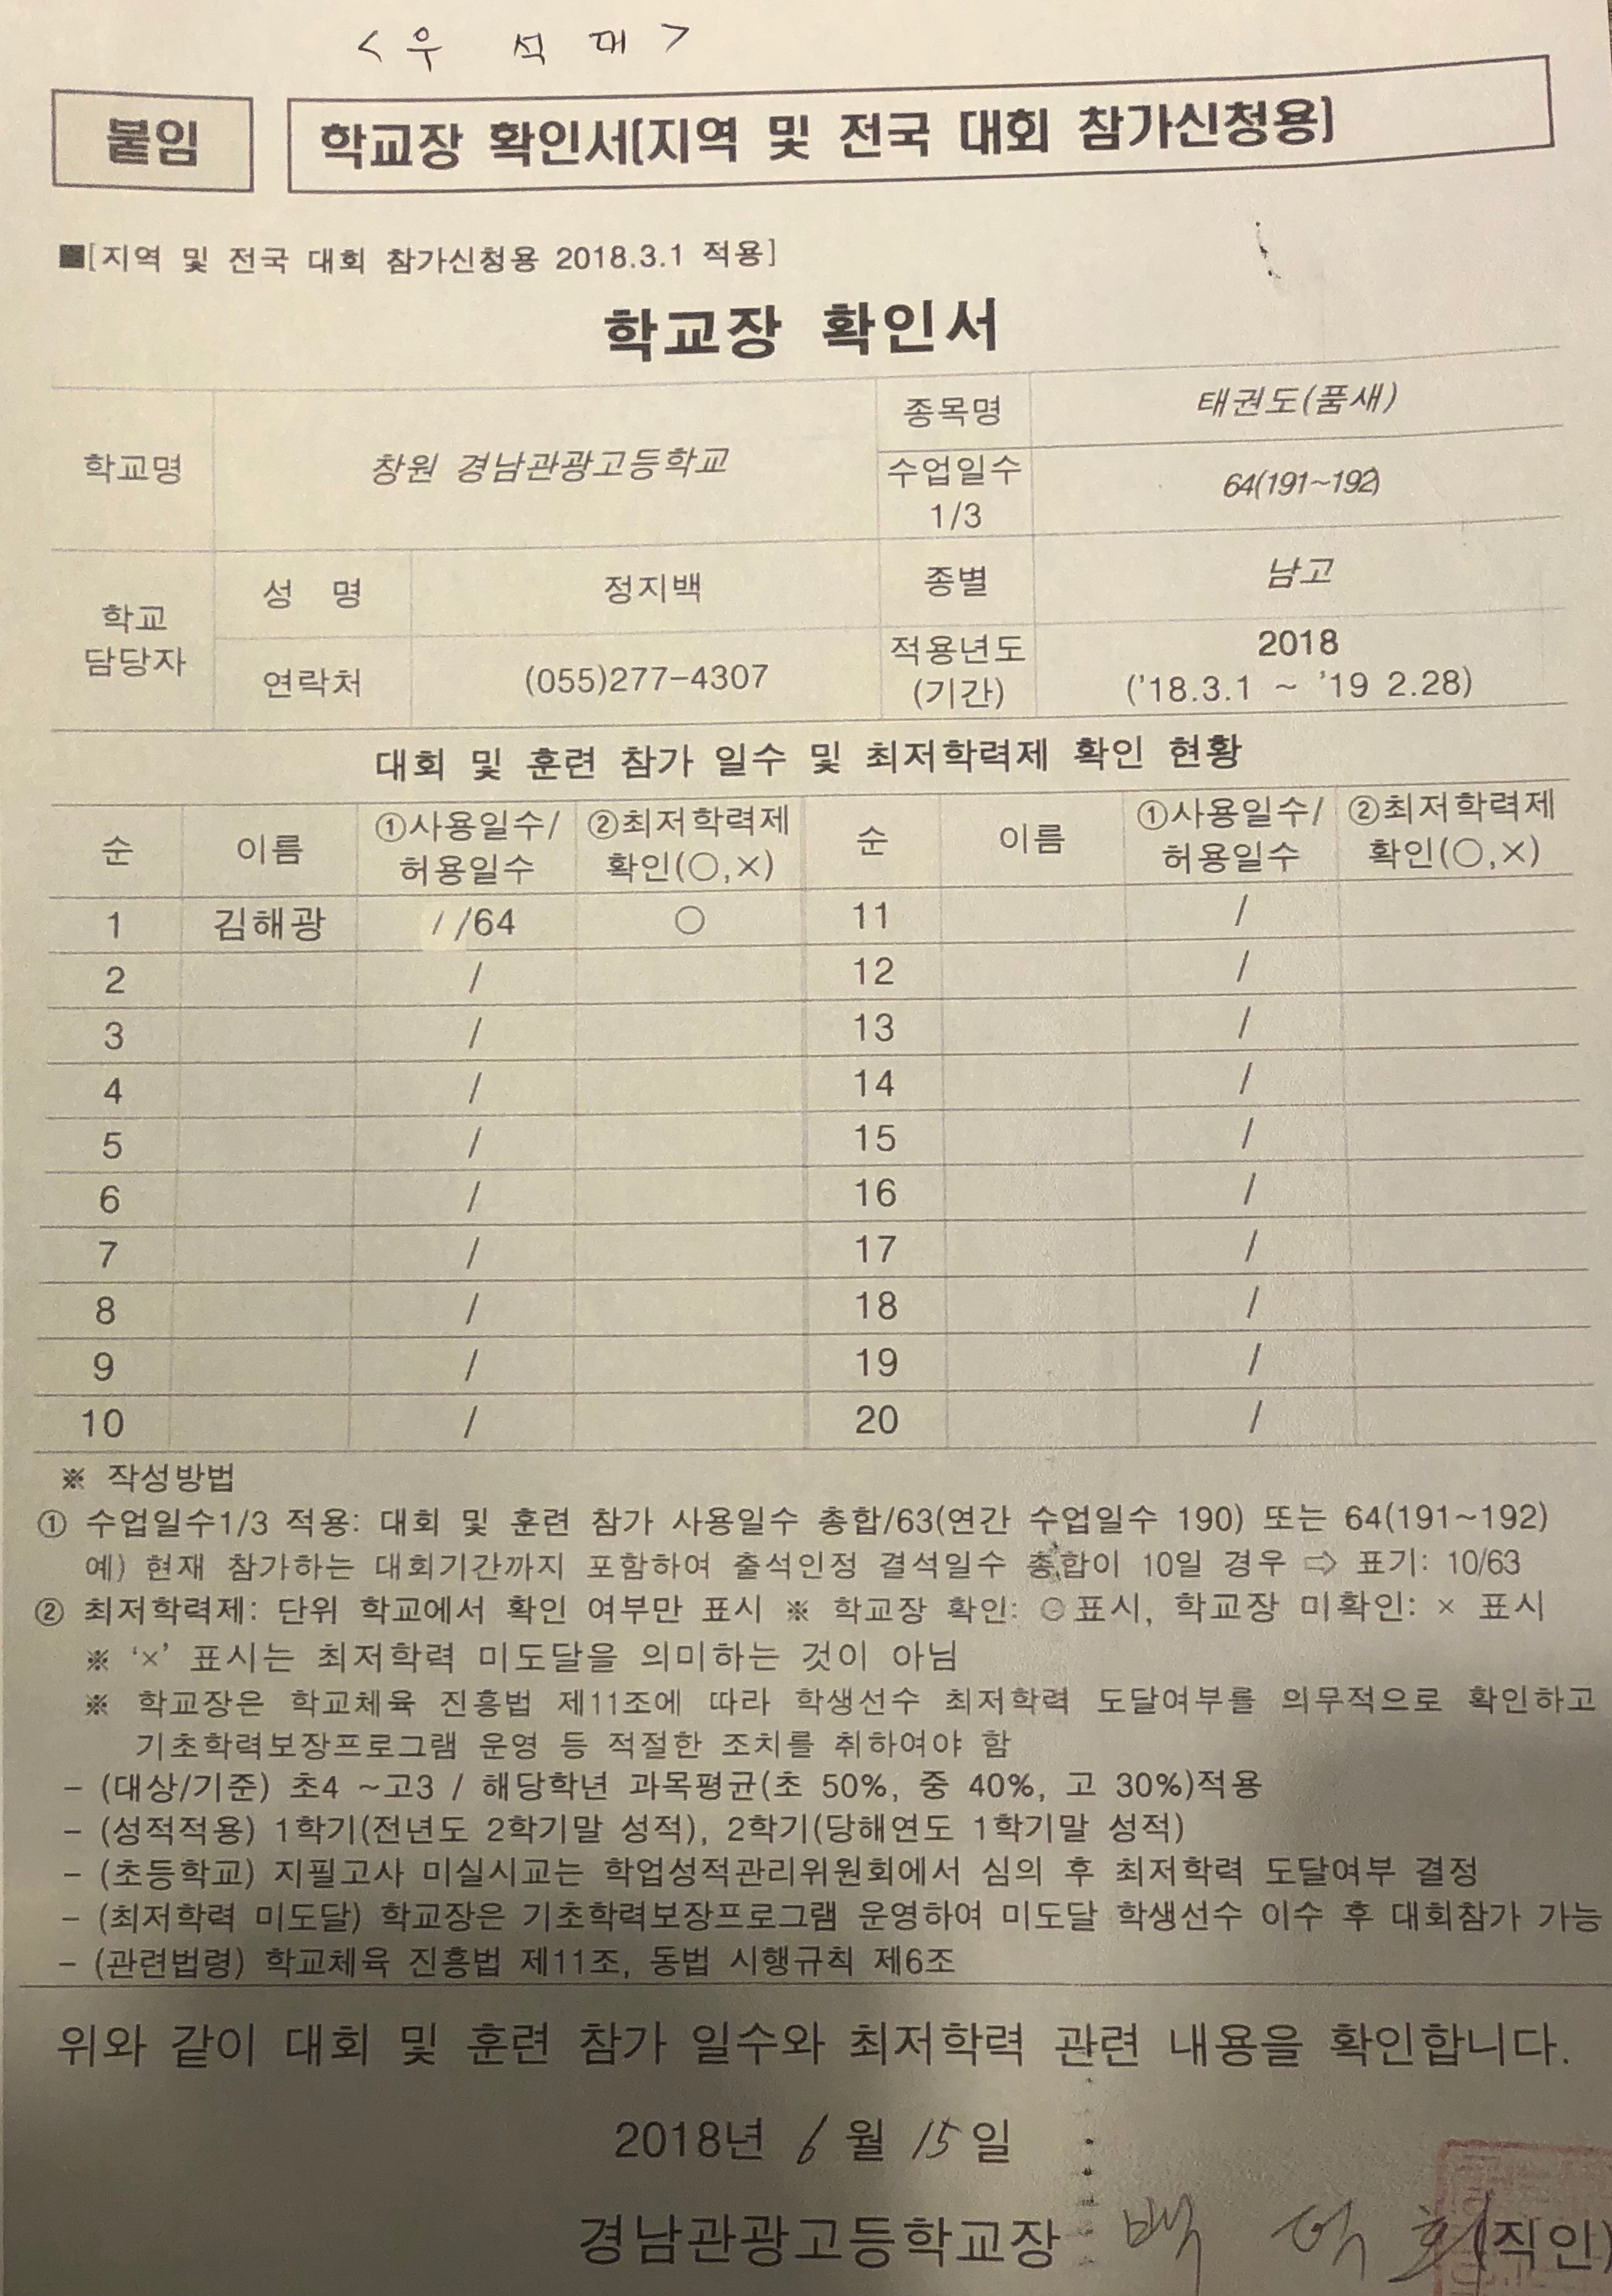 <우 석 대>
붙임
학교장 확인서[지역 및 전국 대회 참가신청용]
■[지역 및 전국 대회 참가신청용 2018.3.1 적용]
학교장 확인서
학교명 창원 경남관광고등학교 종목명 태권도(품새)
수업일수 1/3 64(191~192)
학교 담당자 성 명 정지백 종별 남고
연락처 (055)277-4307 적용년도 (기간) 2018 ('18.3.1 ~ '19 2.28)
대회 및 훈련 참가 일수 및 최저학력제 확인 현황
순 이름 ①사용일수/허용일수 ②최저학력제 확인(○,×) 순 이름 ①사용일수/허용일수 ②최저학력제 확인(○,×)
1 김해광 / /64 ○ 11 /
2 / 12 /
3 / 13 /
4 / 14 /
5 / 15 /
6 / 16 /
7 / 17 /
8 / 18 /
9 / 19 /
10 / 20 /
※ 작성방법
① 수업일수1/3 적용: 대회 및 훈련 참가 사용일수 총합/63(연간 수업일수 190) 또는 64(191~192)
예) 현재 참가하는 대회기간까지 포함하여 출석인정 결석일수 총합이 10일 경우 ⇨ 표기: 10/63
② 최저학력제: 단위 학교에서 확인 여부만 표시 ※ 학교장 확인: ○표시, 학교장 미확인: × 표시
※ '×' 표시는 최저학력 미도달을 의미하는 것이 아님
※ 학교장은 학교체육 진흥법 제11조에 따라 학생선수 최저학력 도달여부를 의무적으로 확인하고
기초학력보장프로그램 운영 등 적절한 조치를 취하여야 함
- (대상/기준) 초4 ~고3 / 해당학년 과목평균(초 50%, 중 40%, 고 30%)적용
- (성적적용) 1학기(전년도 2학기말 성적), 2학기(당해연도 1학기말 성적)
- (초등학교) 지필고사 미실시교는 학업성적관리위원회에서 심의 후 최저학력 도달여부 결정
- (최저학력 미도달) 학교장은 기초학력보장프로그램 운영하여 미도달 학생선수 이수 후 대회참가 가능
- (관련법령) 학교체육 진흥법 제11조, 동법 시행규칙 제6조
위와 같이 대회 및 훈련 참가 일수와 최저학력 관련 내용을 확인합니다.
2018년 6월 15일
경남관광고등학교장 백 (직인)